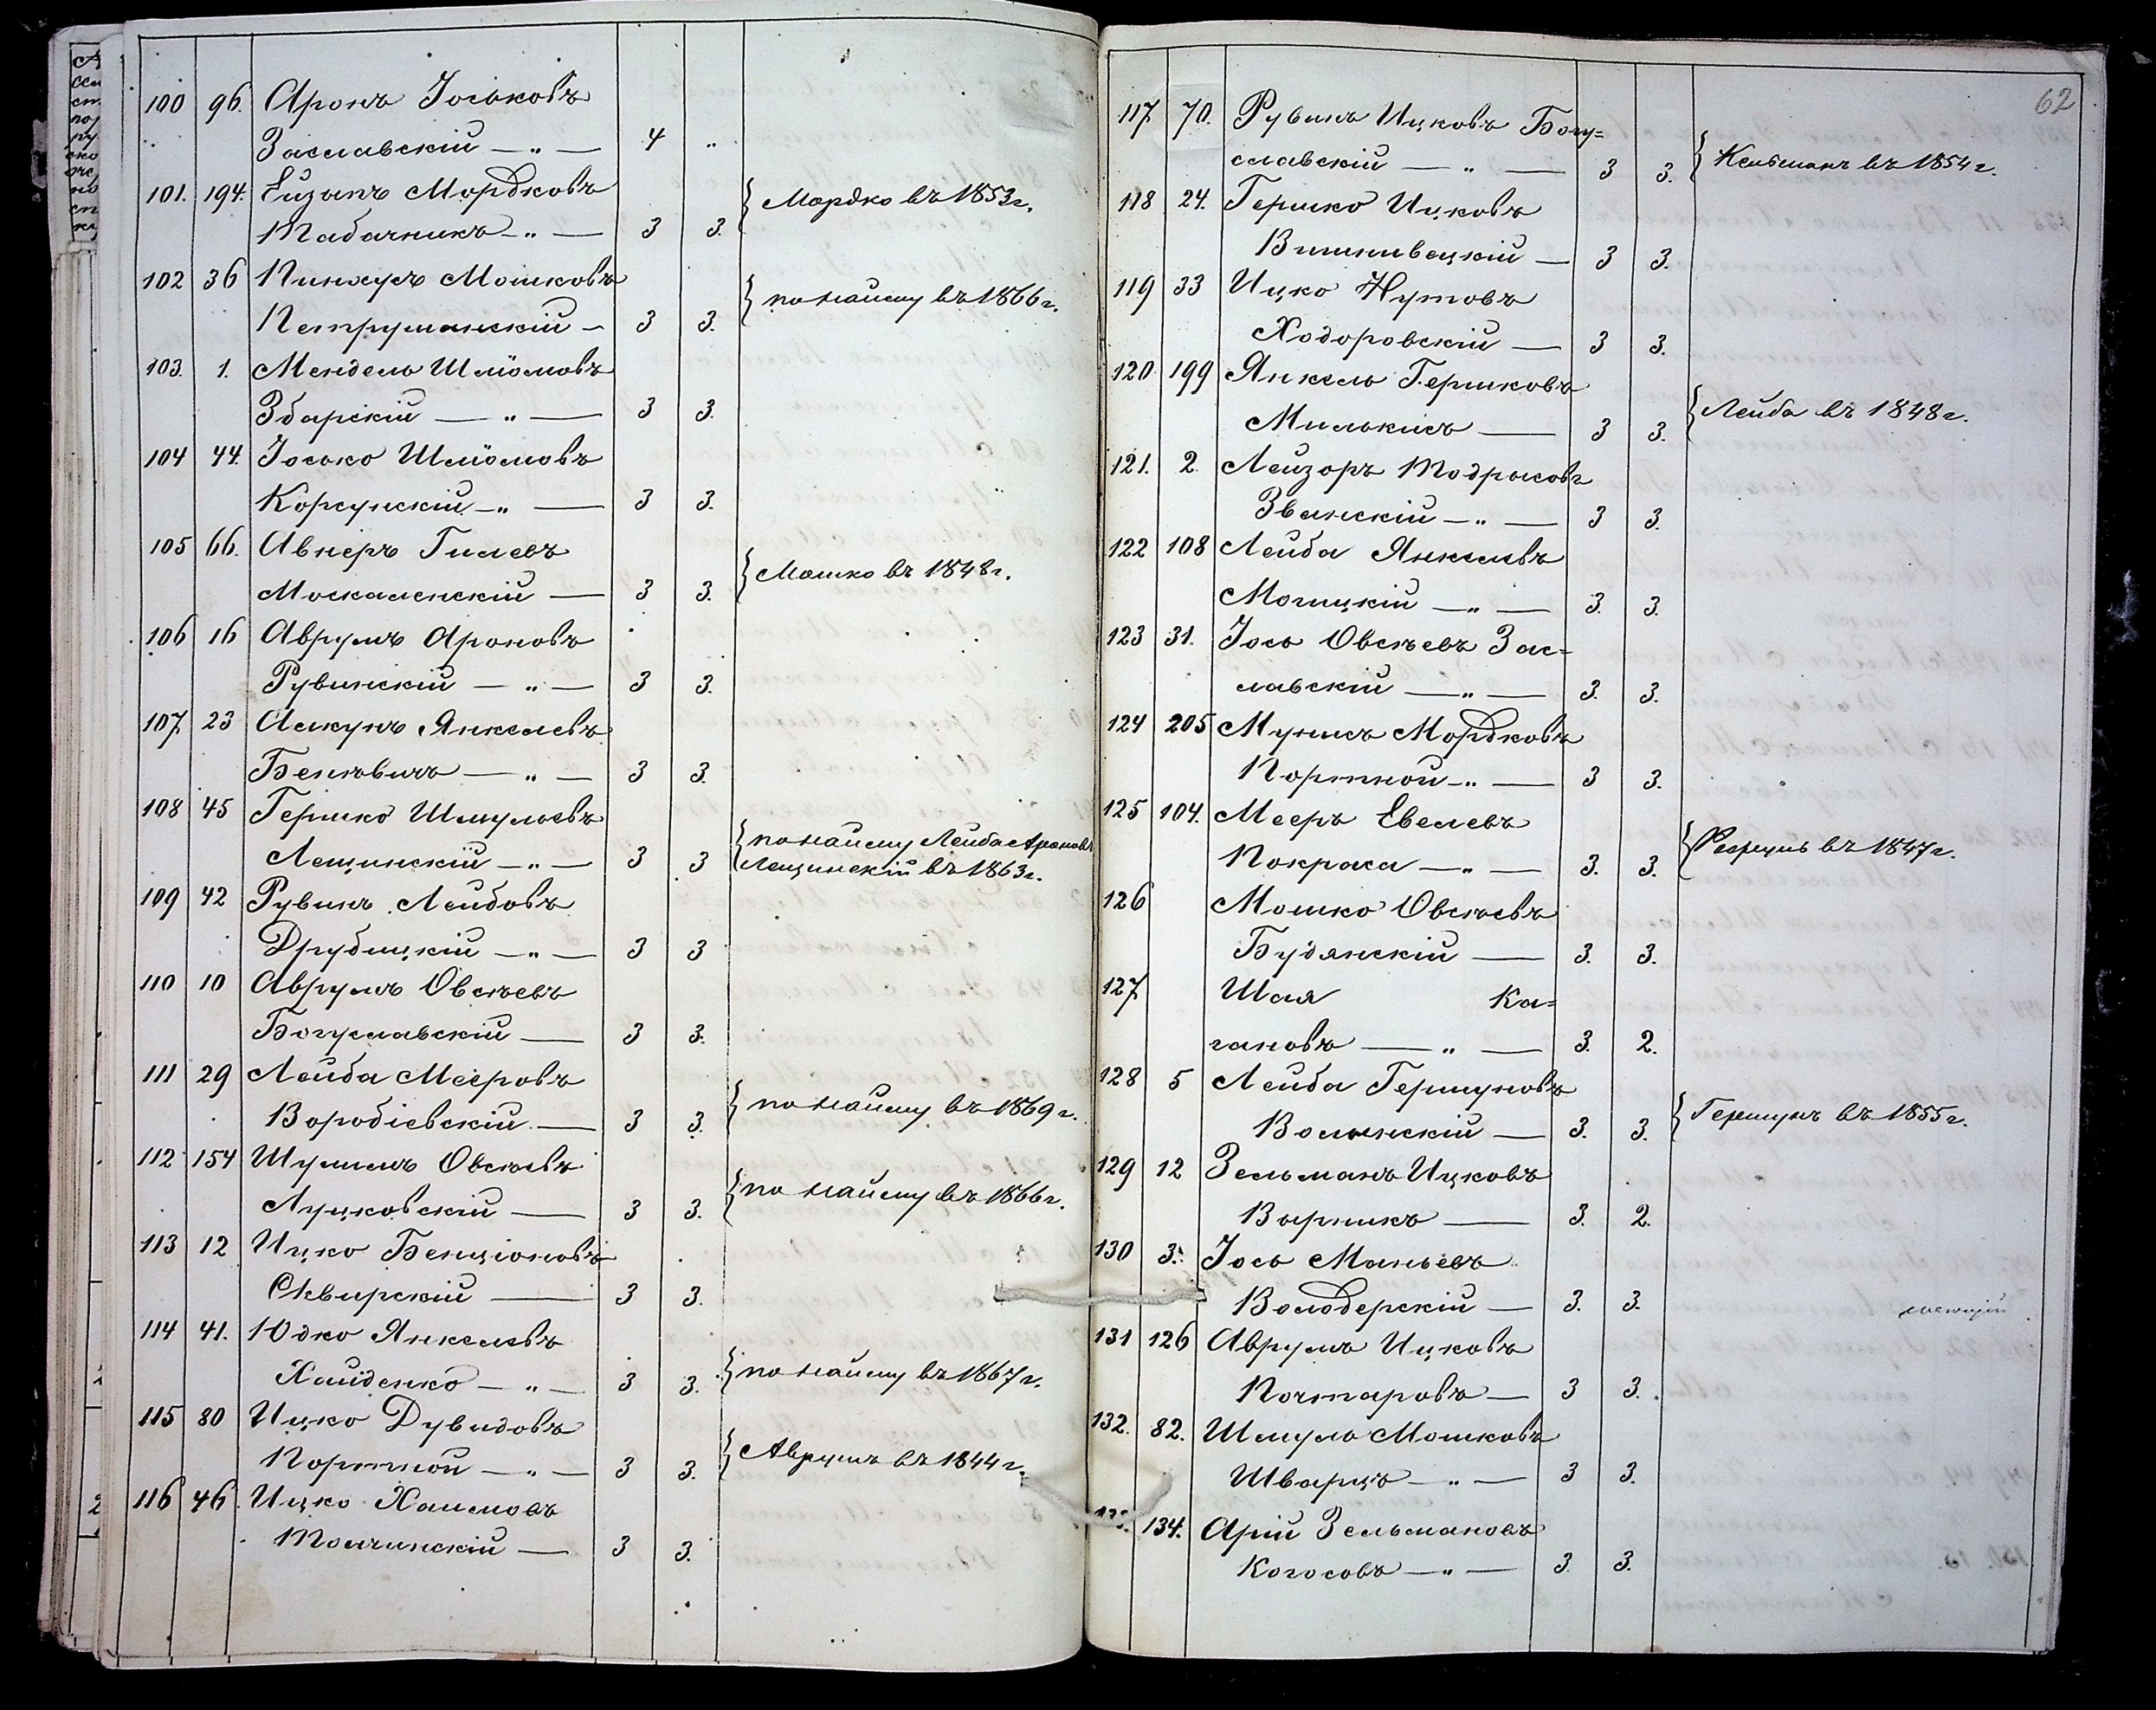 100 96. Аронъ Іоськовъ
Заславскій — „ — 4 „
101. 194. Ейзикъ Мордковъ
Табачникъ — „ — 3 3. Мордко въ 1853 г.
102 36 Пинхусъ Мошковъ
Петрушанскій — 3 3. по найму въ 1866 г.
103. 1. Мендель Шліомовъ
Збарскій — „ — 3 3.
104 44. Іосько Шліомовъ
Корсунскій — „ — 3 3.
105 66. Авнеръ Гилевъ
Москаленскій — 3 3. Мошко въ 1848 г.
106 16 Аврумъ Ароновъ
Рувинскій — „ — 3 3.
107 23 Янкелевъ
— „ — 3 3.
108 45 Гершко Шмулевъ
Лещинскій — „ — 3 3 по найму Лейба Ароновъ
Лещинскій въ 1863 г.
109 42 Рувинъ Лейбовъ
Друбицкій — „ — 3 3
110 10 Аврумъ Овсѣевъ
Богуславскій — 3 3.
111 29 Лейба Мееровъ
Воробіевскій — 3 3. по найму въ 1869 г.
112 154 Шулимъ Овсѣевъ
Луцковскій — 3 3. по найму въ 1866 г.
113 12 Ицко Бенціоновъ
Сквирскій — 3 3.
114 41. Юдко Янкелевъ
Хайденко — „ — 3 3. по найму въ 1867 г.
115 80 Ицко Дувидовъ
Портной — „ — 3 3. Аврумъ въ 1844 г.
116 46. Ицко Хаимовъ
Толчинскій — 3 3.
62
117 70. Рувинъ Ицковъ Богу=
славскій — „ — 3 3. Кельманъ въ 1854 г.
118 24. Гершко Ицковъ
Вишнивецкій — 3 3.
119 33 Ицко Нутовъ
Ходоровскій — 3 3.
120 199 Янкель Гершковъ
Милькисъ — 3 3. Лейба въ 1848 г.
121. 2. Лейзоръ Тодрисовъ
Званскій — „ — 3 3.
122 108 Лейба Янкелевъ
— „ — 3. 3.
123 31. Іось Овсѣевъ Зас=
лавскій — „ — 3. 3.
124 205 Мунишъ Мордковъ
Портной — „ — 3 3.
125 104. Мееръ Евелевъ
Покраса — „ — 3. 3. въ 1847 г.
126 Мошко Овсѣевъ
Будянскій — 3. 3.
127 Шая Ка=
гановъ — „ — 3. 2.
128 5 Лейба Гершуновъ
Волынскій — 3. 3. Гершунъ въ 1855 г.
129 12 Зельманъ Ицковъ
Варникъ — 3. 2.
130 3. Іось Маньевъ
Володерскій — 3. 3.
131 126 Аврумъ Ицковъ
Почтаровъ — 3 3.
132. 82. Шмуль Мошковъ
Шварцъ — „ — 3 3.
133. 134. Арій Зельмановъ
Когосовъ — „ — 3. 3.